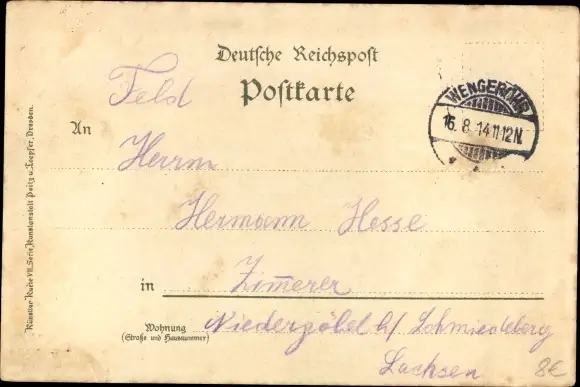 Deutsche Reichspost
Feld
Postkarte
WENGEROHR
16.8.14 11-12N.
An
Herrn
Hermann Hesse
in
Zimmerer
Wohnung
(Straße und Hausnummer)
Niedergöbel b/ Schmiedeberg
Sachsen
8€
Künstler-Karte VII. Serie, Kunstanstalt Peitz u. Toepfer, Dresden.